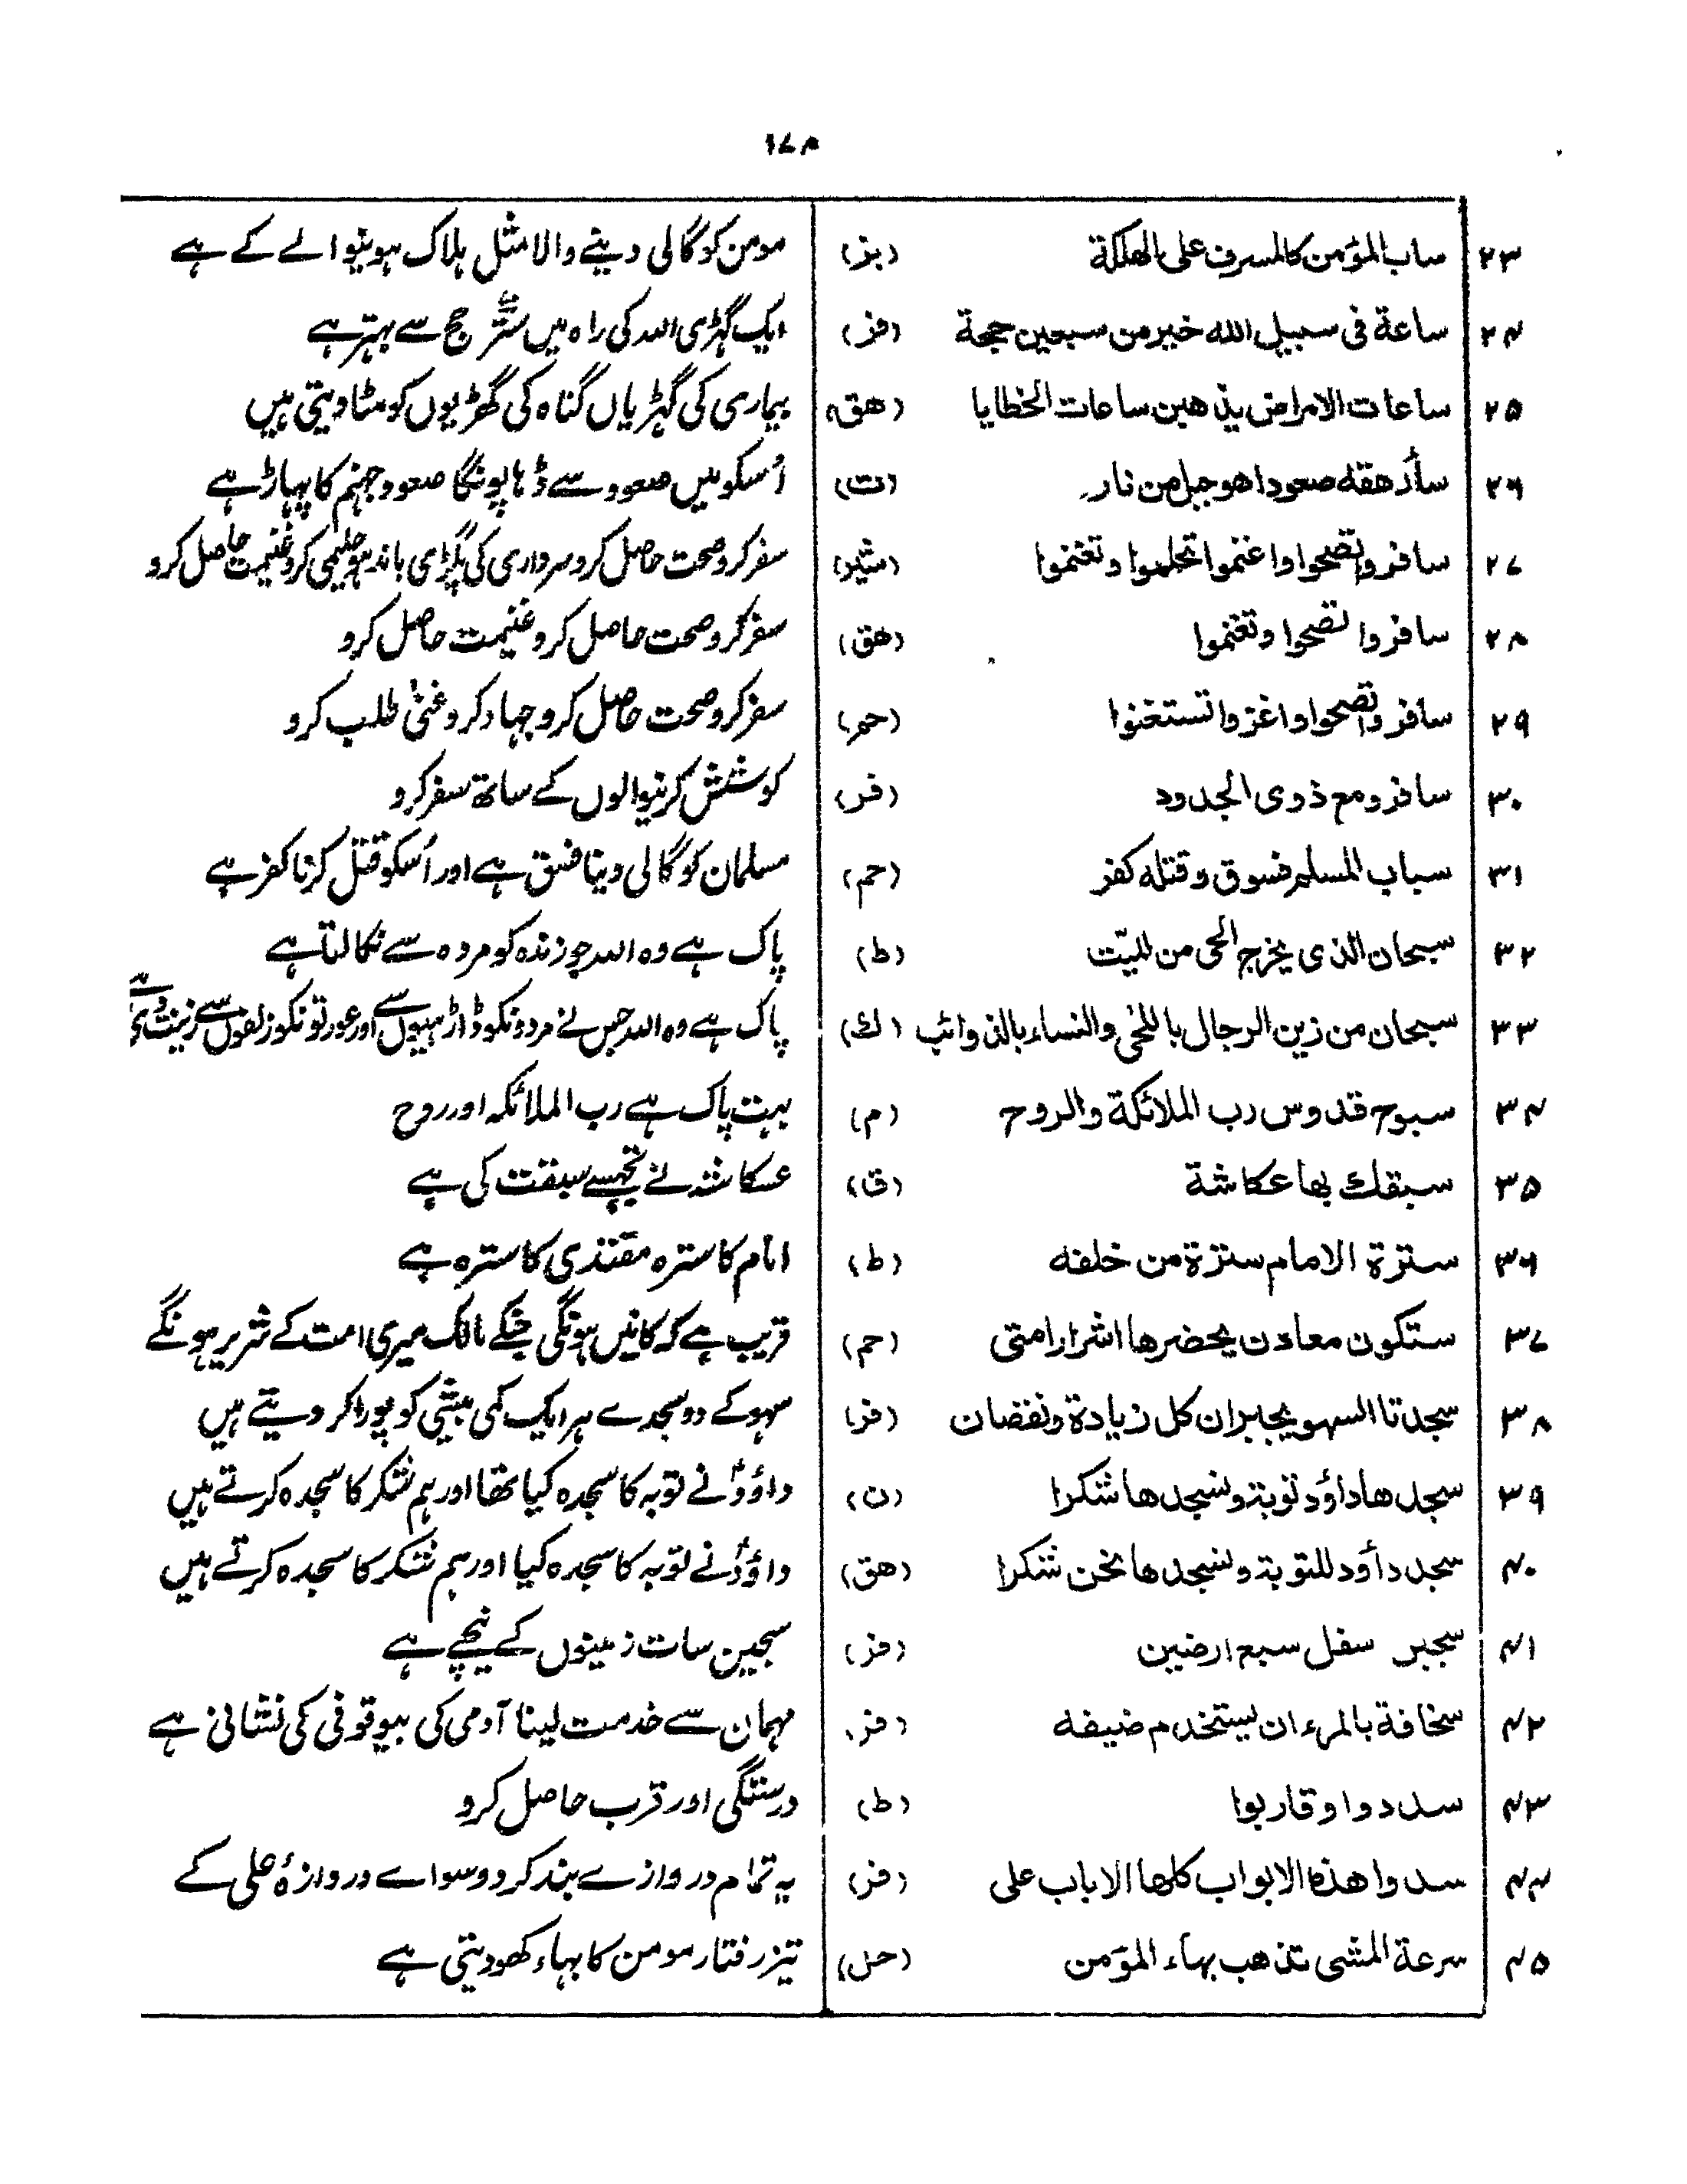 ۱۷۴
۲۳ ساب المؤمن کالمسرف علی الھلکة (بز) مومن کو گالی دینے والا مثل ہلاک ہونیوالے کے ہے
۲۴ ساعة فی سبیل الله خیر من سبعین حجة (فر) ایک گہڑی اللہ کی راہ میں ستّر حج سے بہتر ہے
۲۵ ساعات الامراض یذھبن ساعات الخطایا (ھق) بیماری کی گہڑیاں گناہ کی گھڑیوں کو مٹا دیتی ہیں
۲۶ سأرھقه صعودا ھو جبل من نار (ت) اُسکو میں صعود سے ڈہاپونگا صعود جہنم کا پہاڑ ہے
۲۷ سافروا تصحوا واغنموا تحلموا وتغنموا (شیر) سفر کرو صحت حاصل کرو سرداری کی پگڑی باندہو حلیمی کرو غنیمت حاصل کرو
۲۸ سافروا تصحوا وتغنموا (ھق) سفر کرو صحت حاصل کرو غنیمت حاصل کرو
۲۹ سافروا تصحوا واغزوا تستغنوا (حم) سفر کرو صحت حاصل کرو جہاد کرو غنیٰ طلب کرو
۳۰ سافرو مع ذوی الجدود (فر) کوشش کرنیوالوں کے ساتھ سفر کرو
۳۱ سباب المسلم فسوق وقتله کفر (حم) مسلمان کو گالی دینا فسق ہے اور اُسکو قتل کرنا کفر ہے
۳۲ سبحان الذی یخرج الحی من المیّت (ط) پاک ہے وہ اللہ جو زندہ کو مردہ سے نکالتا ہے
۳۳ سبحان من زین الرجال باللحی والنساء بالذوائب (ك) پاک ہے وہ اللہ جس نے مردونکو ڈاڑہیوں سے اور عورتونکو زلفوں سے زینت دی
۳۴ سبوح قدوس رب الملائکة والروح (م) بہت پاک ہے رب الملائکہ اور روح
۳۵ سبقك بھا عکاشة (ق) عسکاشہ نے تجہسے سبقت کی ہے
۳۶ سترة الامام سترة من خلفه (ط) امام کا سترہ مقتدی کا سترہ ہے
۳۷ ستکون معادن یحضرھا اشرار امتی (حم) قریب ہے کہ کانیں ہونگی جنکے مالک میری امت کے شریر ہونگے
۳۸ سجدتا السھو یجبران کل زیادة ونقصان (فر) سہو کے دو سجدے ہر ایک کمی بیشی کو پورا کر دیتے ہیں
۳۹ سجدھا داؤد توبة ونسجدھا شکرا (ن) داؤدؑ نے توبہ کا سجدہ کیا تھا اور ہم شکر کا سجدہ کرتے ہیں
۴۰ سجد داؤد للتوبة ونسجدھا نحن شکرا (ھق) داؤدؑ نے توبہ کا سجدہ کیا اور ہم شکر کا سجدہ کرتے ہیں
۴۱ سفل سبع ارضین (فر) سجین سات زمینوں کے نیچے ہے
۴۲ سخافة بالمرء ان یستخدم ضیفه (فر) مہمان سے خدمت لینا آدمی کی بیوقوفی کی نشانی ہے
۴۳ سددوا وقاربوا (ط) درستگی اور قرب حاصل کرو
۴۴ سدوا ھذہ الابواب کلھا الا باب علی (فر) یہ تمام دروازے بند کر دو سوائے دروازۂ علی کے
۴۵ سرعة المشی تذھب بہاء المؤمن (حل) تیز رفتار مومن کا بہاء کھو دیتی ہے